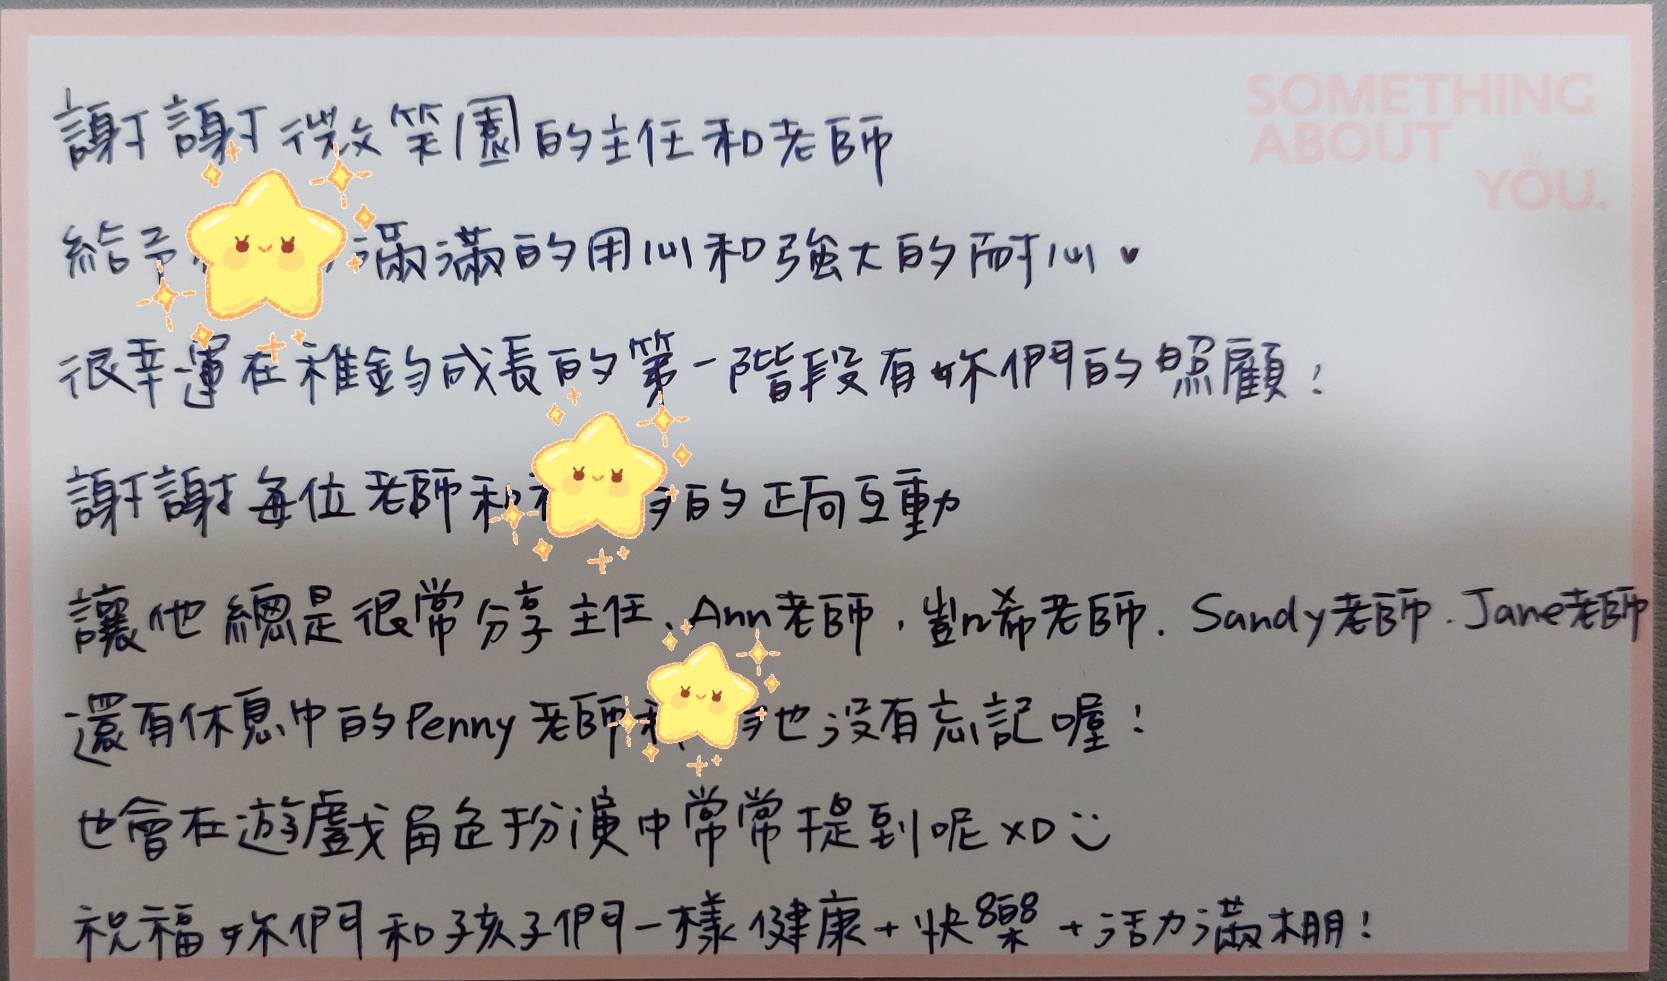 SOMETHING
ABOUT
YOU.
謝謝微笑園的主任和老師
給予 滿滿的用心和強大的耐心♥
很幸運在稚鈞成長的第一階段有妳們的照顧！
謝謝每位老師和 的正向互動
讓他總是很常分享主任、Ann老師，豈ㄣ希老師．Sandy老師．Jane老師
還有休息中的Penny老師 也沒有忘記喔！
也會在遊戲角色扮演中常常提到呢 XD
祝福妳們和孩子們一樣健康+快樂+活力滿棚！